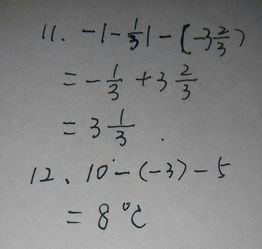 11. -|-1/3| - (-3 2/3)
= -1/3 + 3 2/3
= 3 1/3.
12、10 - (-3) - 5
= 8℃